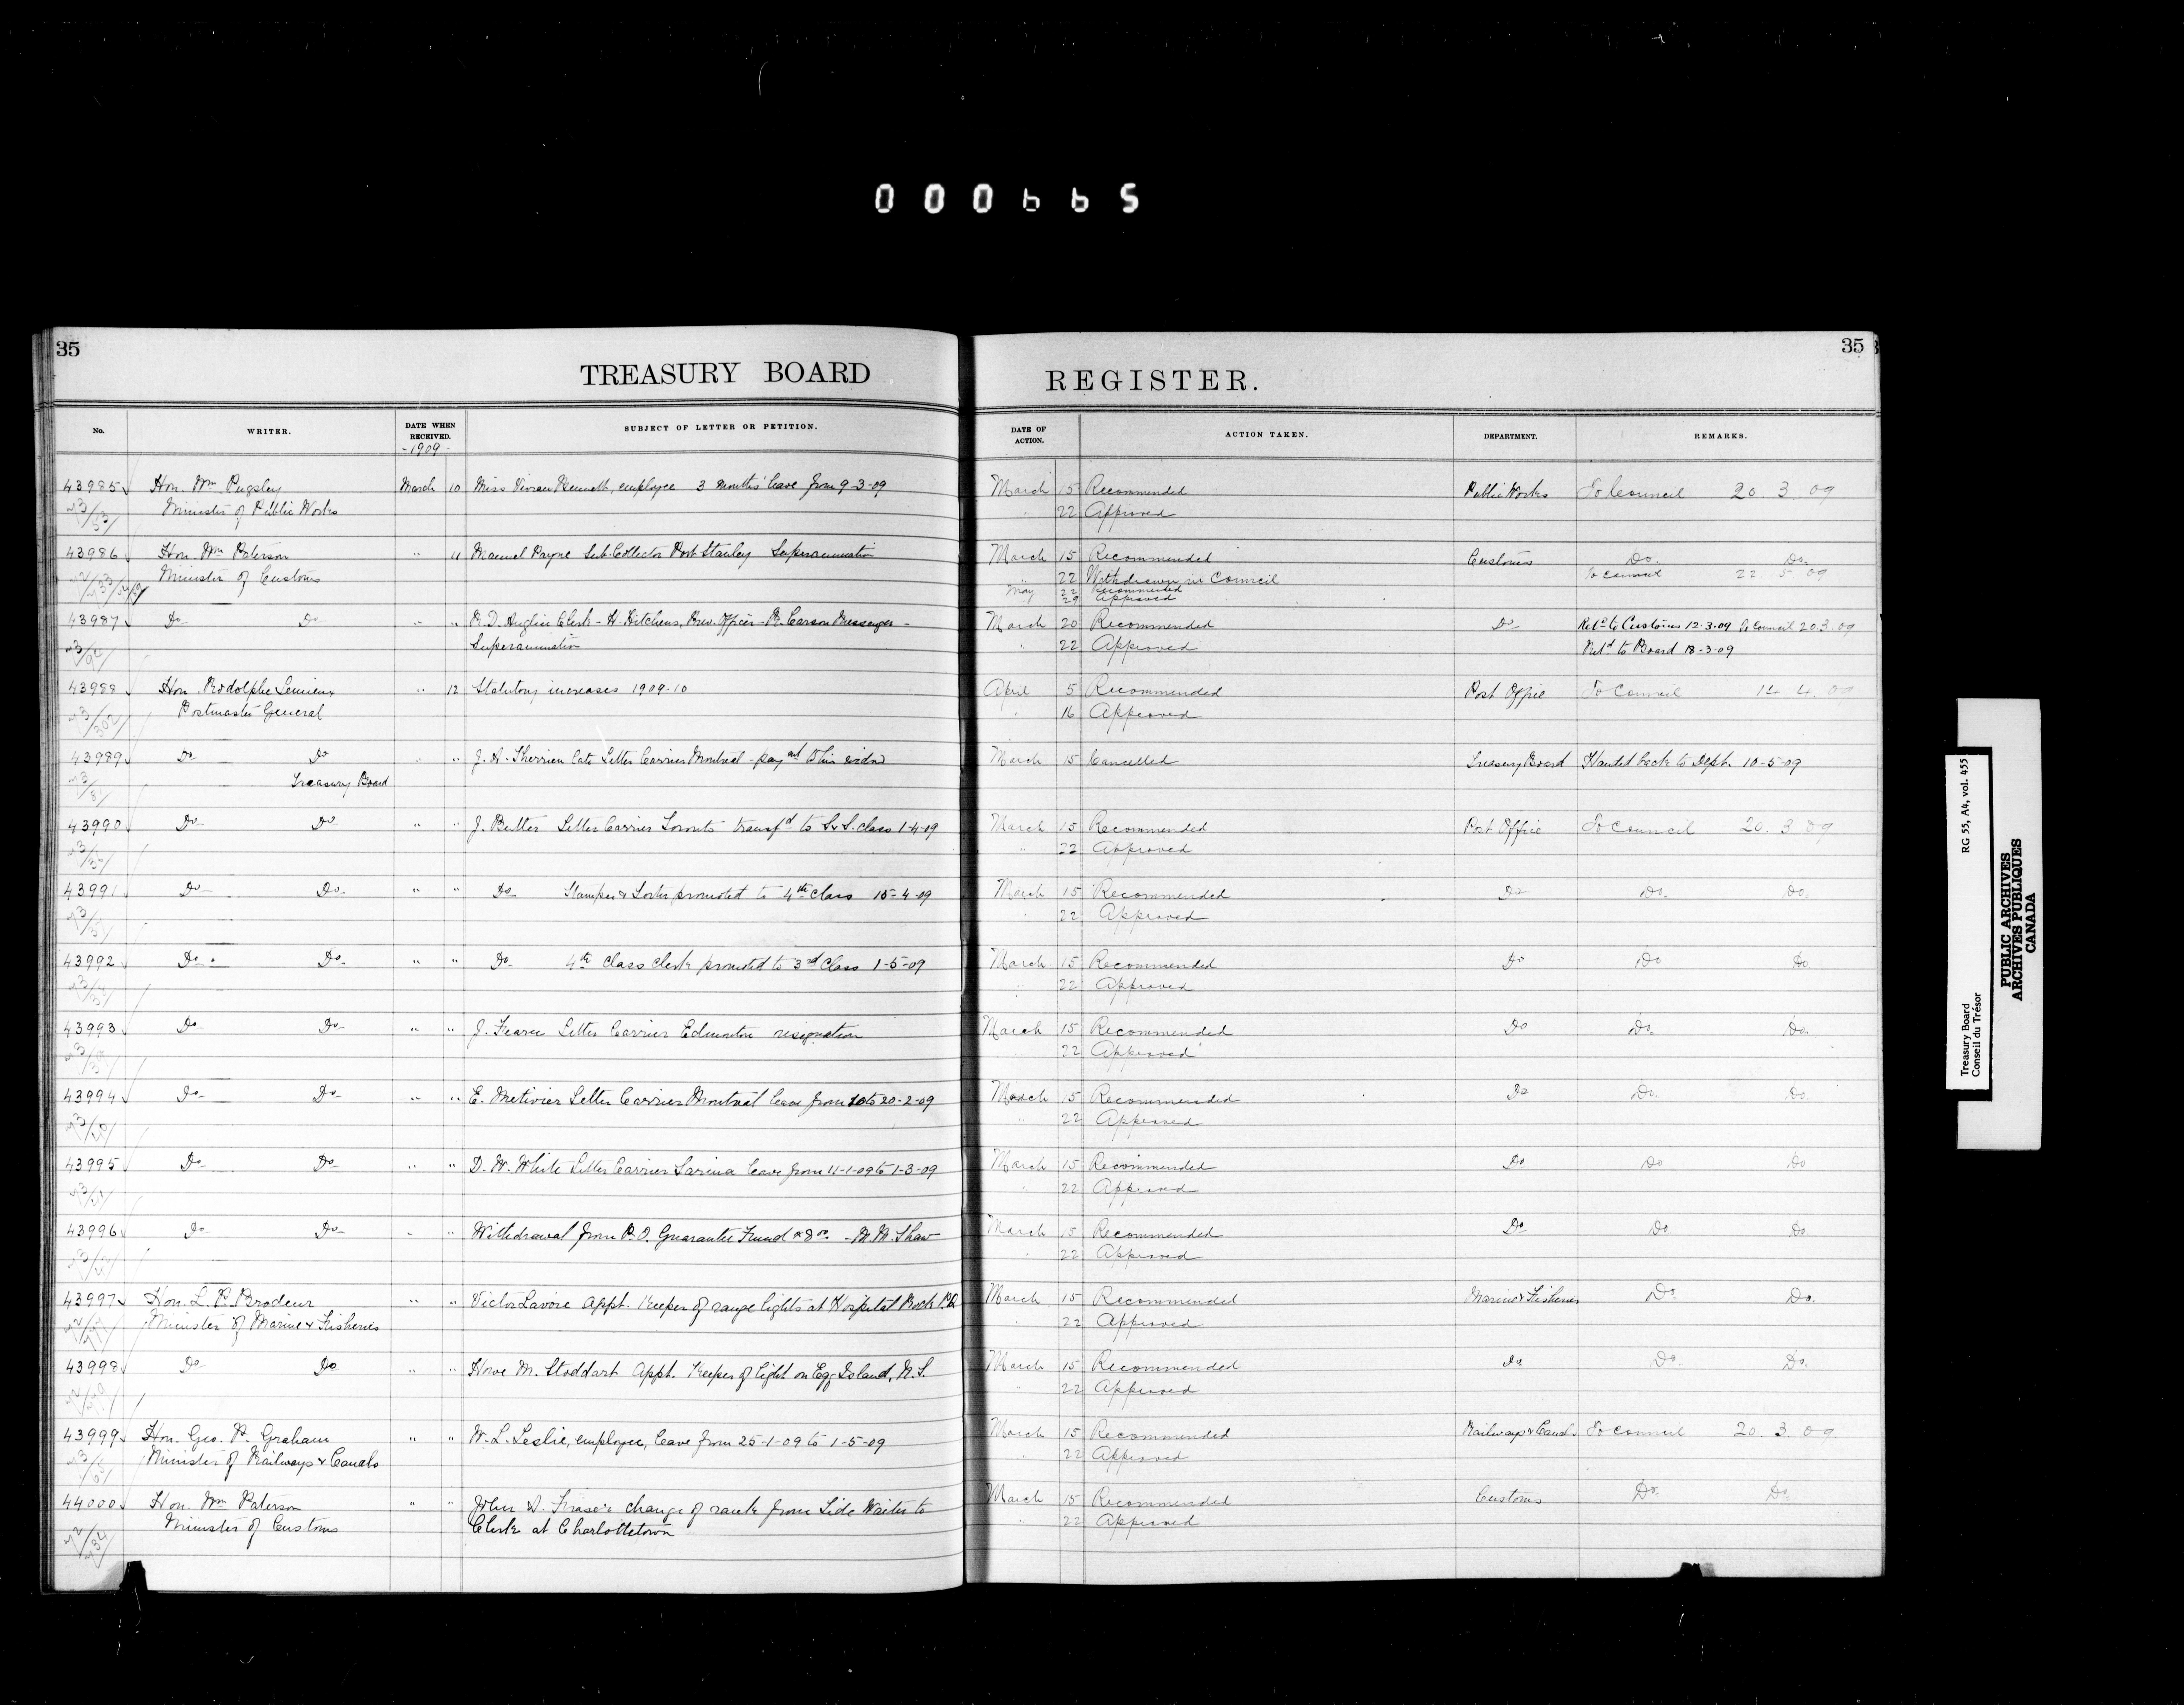 000665
35
TREASURY BOARD
REGISTER.
35
No. WRITER. DATE WHEN RECEIVED. SUBJECT OF LETTER OR PETITION. DATE OF ACTION. ACTION TAKEN. DEPARTMENT. REMARKS.
-1909-
43985 Hon. Wm Pugsley March 10 Miss Vivian Bennett, employee 3 months' leave from 9-3-09 March 15 Recommended Public Works To Council 20.3.09
Minister of Public Works " 22 Approved
43986 Hon. Wm Paterson " 11 Manuel Payne Sub-Collector Port Stanley Superannuation March 15 Recommended Customs Do. Do.
Minister of Customs " 22 Withdrawn in Council To Council 22.5.09
May 22 Recommended
29 Approved
43987 Do Do " " R.D. Anglin Clerk - H. Hitchens, Prev. Officer - R. Carson Messenger - March 20 Recommended Do Ret'd to Customs 12-3-09 To Council 20.3.09
Superannuation " 22 Approved Ret'd to Board 18-3-09
43988 Hon. Rodolphe Lemieux " 12 Statutory increases 1909-10 April 5 Recommended Post Office To Council 14.4.09
Postmaster General " 16 Approved
43989 Do Do " " J. A. Therrien late Letter Carrier Montreal - paymt to his widow March 15 Cancelled Treasury Board Handed back to Dept. 10-5-09
Treasury Board
43990 Do Do " " J. Butler Letter Carrier Toronto transfd to S.&S. class 1-4-09 March 15 Recommended Post Office To Council 20.3.09
" 22 Approved
43991 Do Do " " Do Stamper & Sorter promoted to 4th Class 15-4-09 March 15 Recommended Do Do. Do.
" 22 Approved
43992 Do Do " " Do 4th Class Clerk promoted to 3rd Class 1-5-09 March 15 Recommended Do Do Do
" 22 Approved
43993 Do Do " " J. Fearn Letter Carrier Edmonton resignation March 15 Recommended Do Do. Do.
" 22 Approved
43994 Do Do " " E. Metivier Letter Carrier Montreal leave from 10 to 20-2-09 March 15 Recommended Do Do. Do.
" 22 Approved
43995 Do Do " " D. W. White Letter Carrier Sarnia leave from 11-1-09 to 1-3-09 March 15 Recommended Do Do Do
" 22 Approved
43996 Do Do " " Withdrawal from P.O. Guarantee Fund - Shaw March 15 Recommended Do Do Do.
" 22 Approved
43997 Hon. L. P. Brodeur " " Victor Lavoie Appt. Keeper of range lights at Hospital Rock P.Q. March 15 Recommended Marine & Fisheries Do Do.
Minister of Marine & Fisheries " 22 Approved
43998 Do Do " " Howe M. Stoddart Appt. Keeper of light on Egg Island, N.S. March 15 Recommended Do Do Do.
" 22 Approved
43999 Hon. Geo. P. Graham " " W. L. Leslie, employee, leave from 25-1-09 to 1-5-09 March 15 Recommended Railways & Canals To Council 20.3.09
Minister of Railways & Canals " 22 Approved
44000 Hon. Wm Paterson " " John A. Fraser change of rank from Tide Waiter to March 15 Recommended Customs Do Do.
Minister of Customs Clerk at Charlottetown " 22 Approved
Treasury Board RG 55, A4, vol. 455
Conseil du Trésor
PUBLIC ARCHIVES
ARCHIVES PUBLIQUES
CANADA